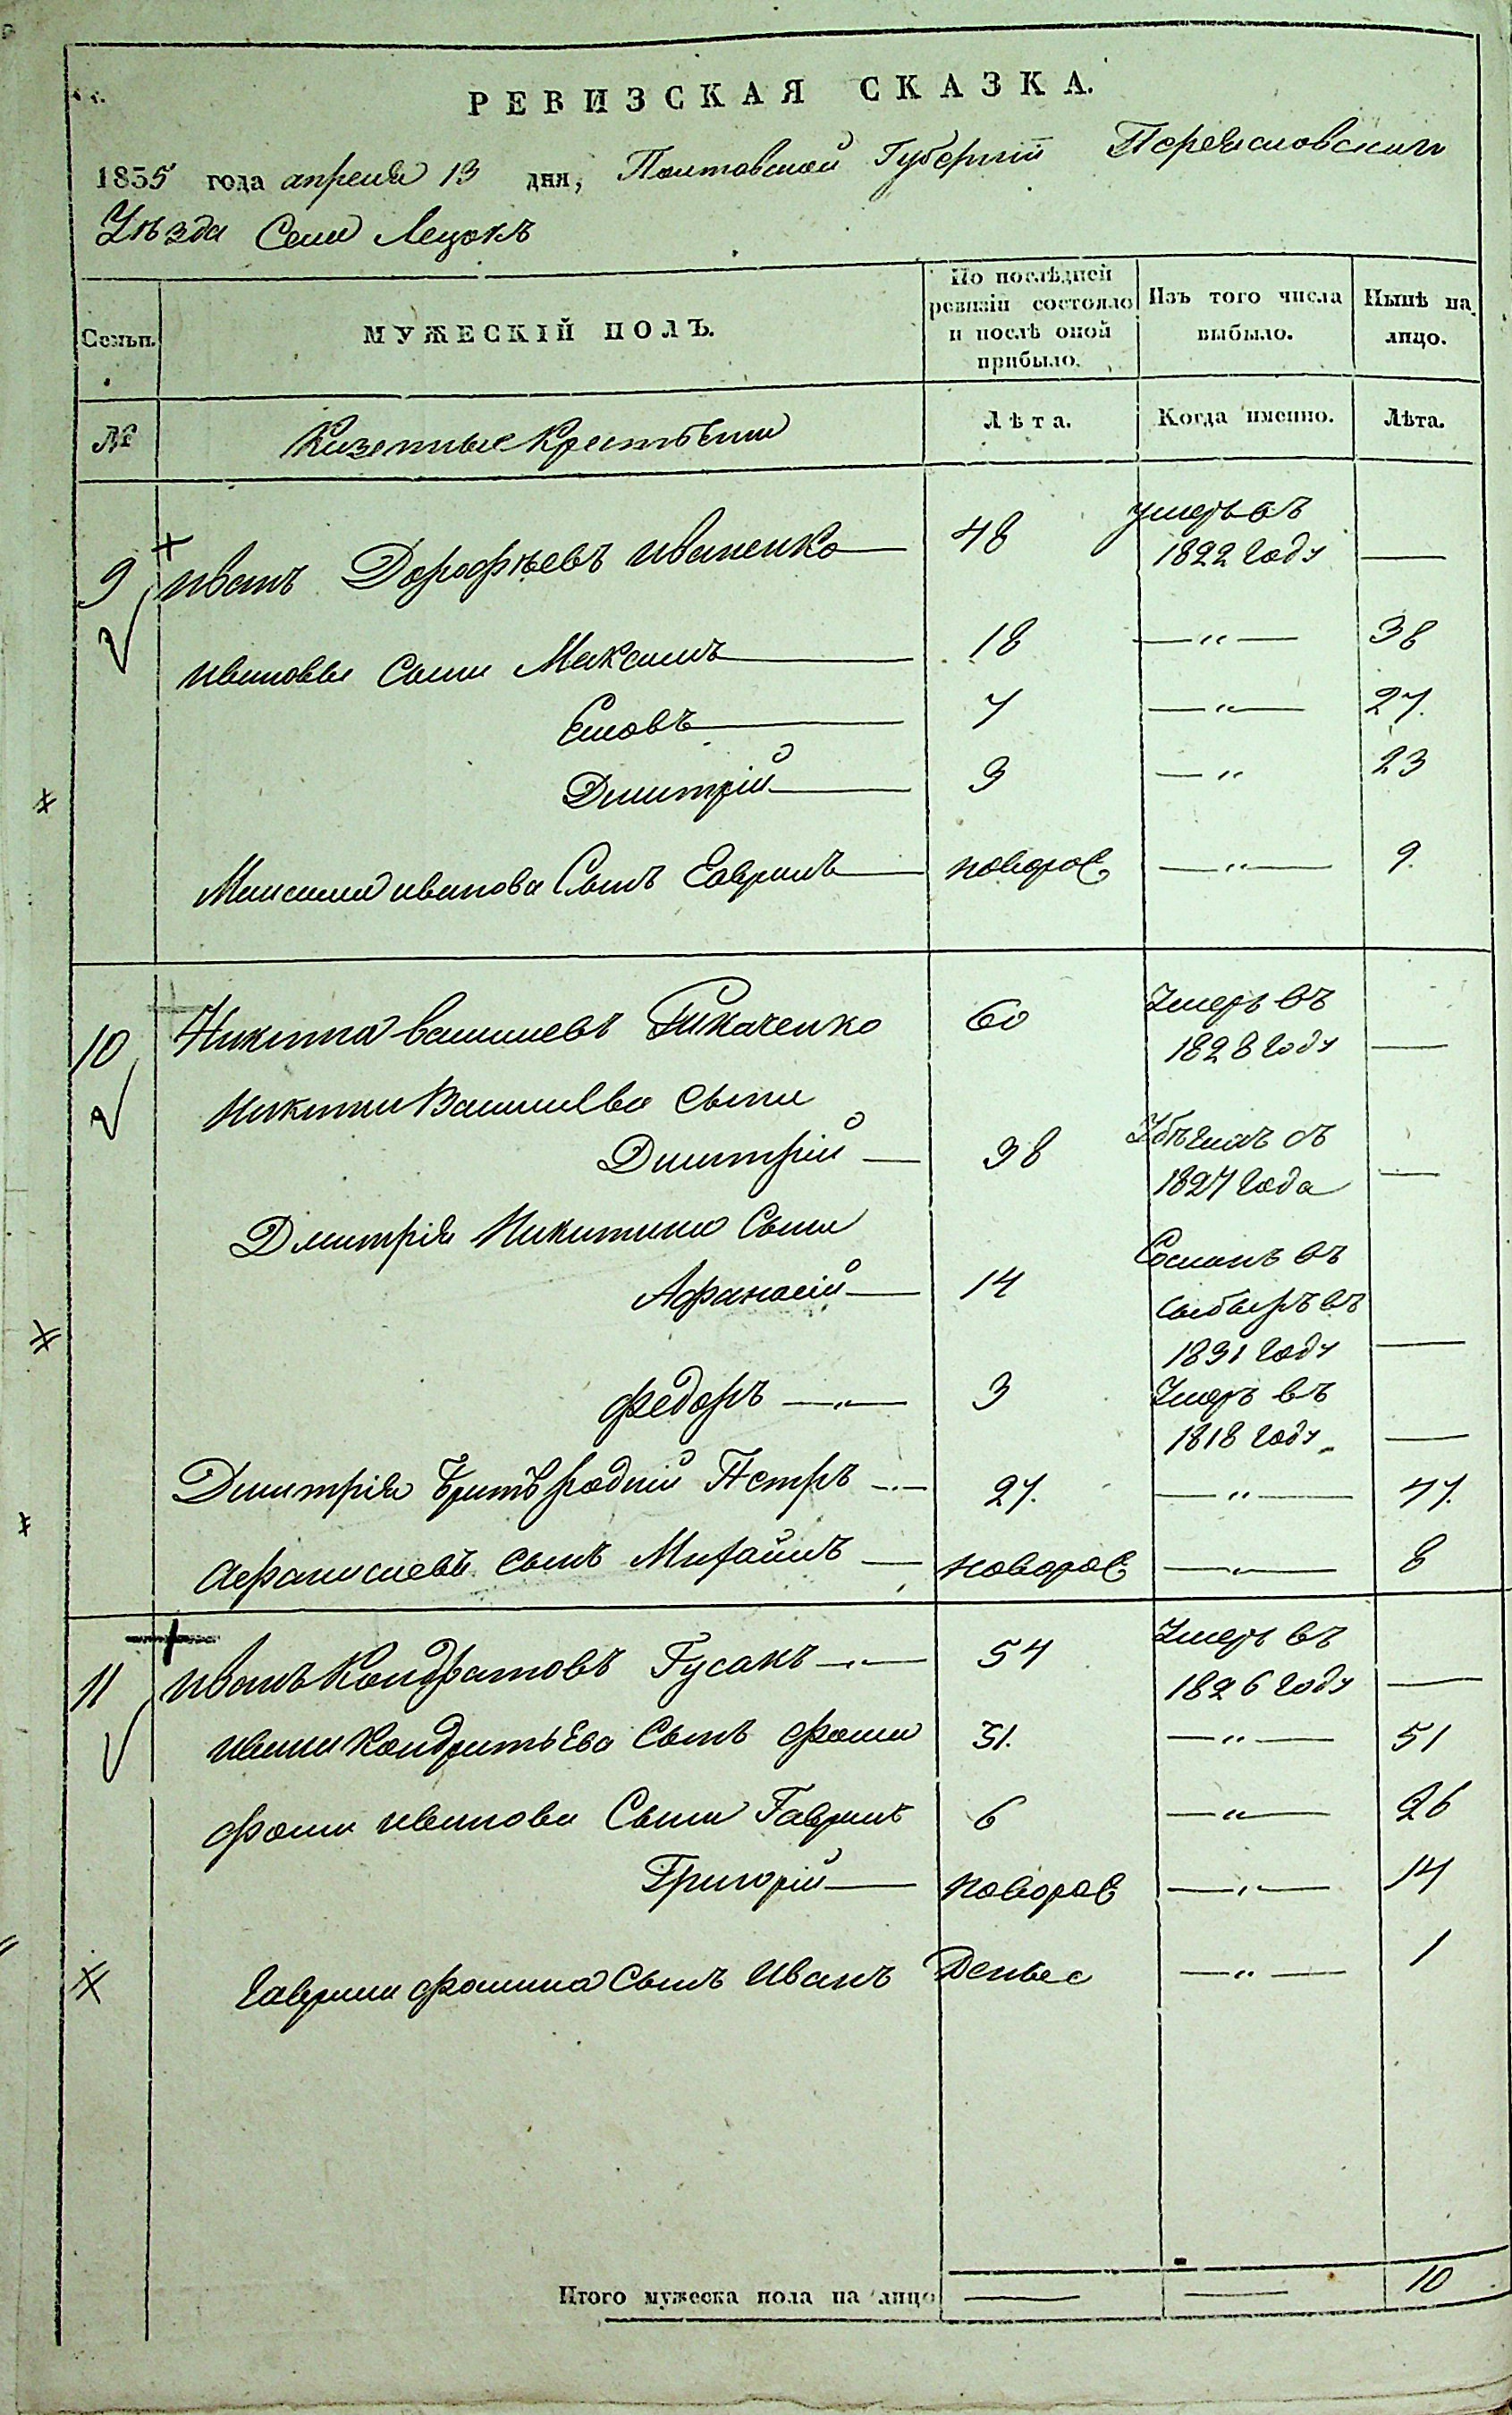 РЕВИЗСКАЯ СКАЗКА.
1835 года апреля 13 дня, Полтавской Губернїи Переяславскаго
Уѣзда Села Лецокъ
Семьи. МУЖЕСКІЙ ПОЛЪ. По послѣдней ревизіи состояло и послѣ оной прибыло. Изъ того числа выбыло. Нынѣ на лицо.
№ Казенные крестьяни Лѣта. Когда именно. Лѣта.
9 Иванъ Дорофѣевъ Иваненко 48 умеръ въ 1822 году —
Ивановы Сыни Максимъ 18 —"— 38
7 —"— 27.
Дмитрій 3 —" 23
Максима Иванова Сынъ Гаврилъ новорож —"— 9.
10 Никита Васильевъ Ткаченко 60 Умеръ въ 1828 году —
Никити Васильева Сыни
Дмитрій — 38 Убѣжалъ съ 1827 года —
Дмитрія Никитина Сыни
Афанасій — 14 Сосланъ въ сибыръ въ 1831 году —
Федоръ —"— 3 Умеръ въ 1818 году —
Дмитрія братъ родній Петръ 27. —"— 47.
Афанасиевъ сынъ Михайлъ — новорож —"— 8
11 Иванъ Кондратовъ Гусакъ 54 Умеръ въ 1826 году —
Ивана Кондратьева Сынъ Фома 31. —"— 51
Фоми Иванова Сыни Гаврилъ 6 —"— 26
Григорій — новорож —"— 14
Гаврили Фомина Сынъ Иванъ —"— 1
Итого мужеска пола на лицо — — 10